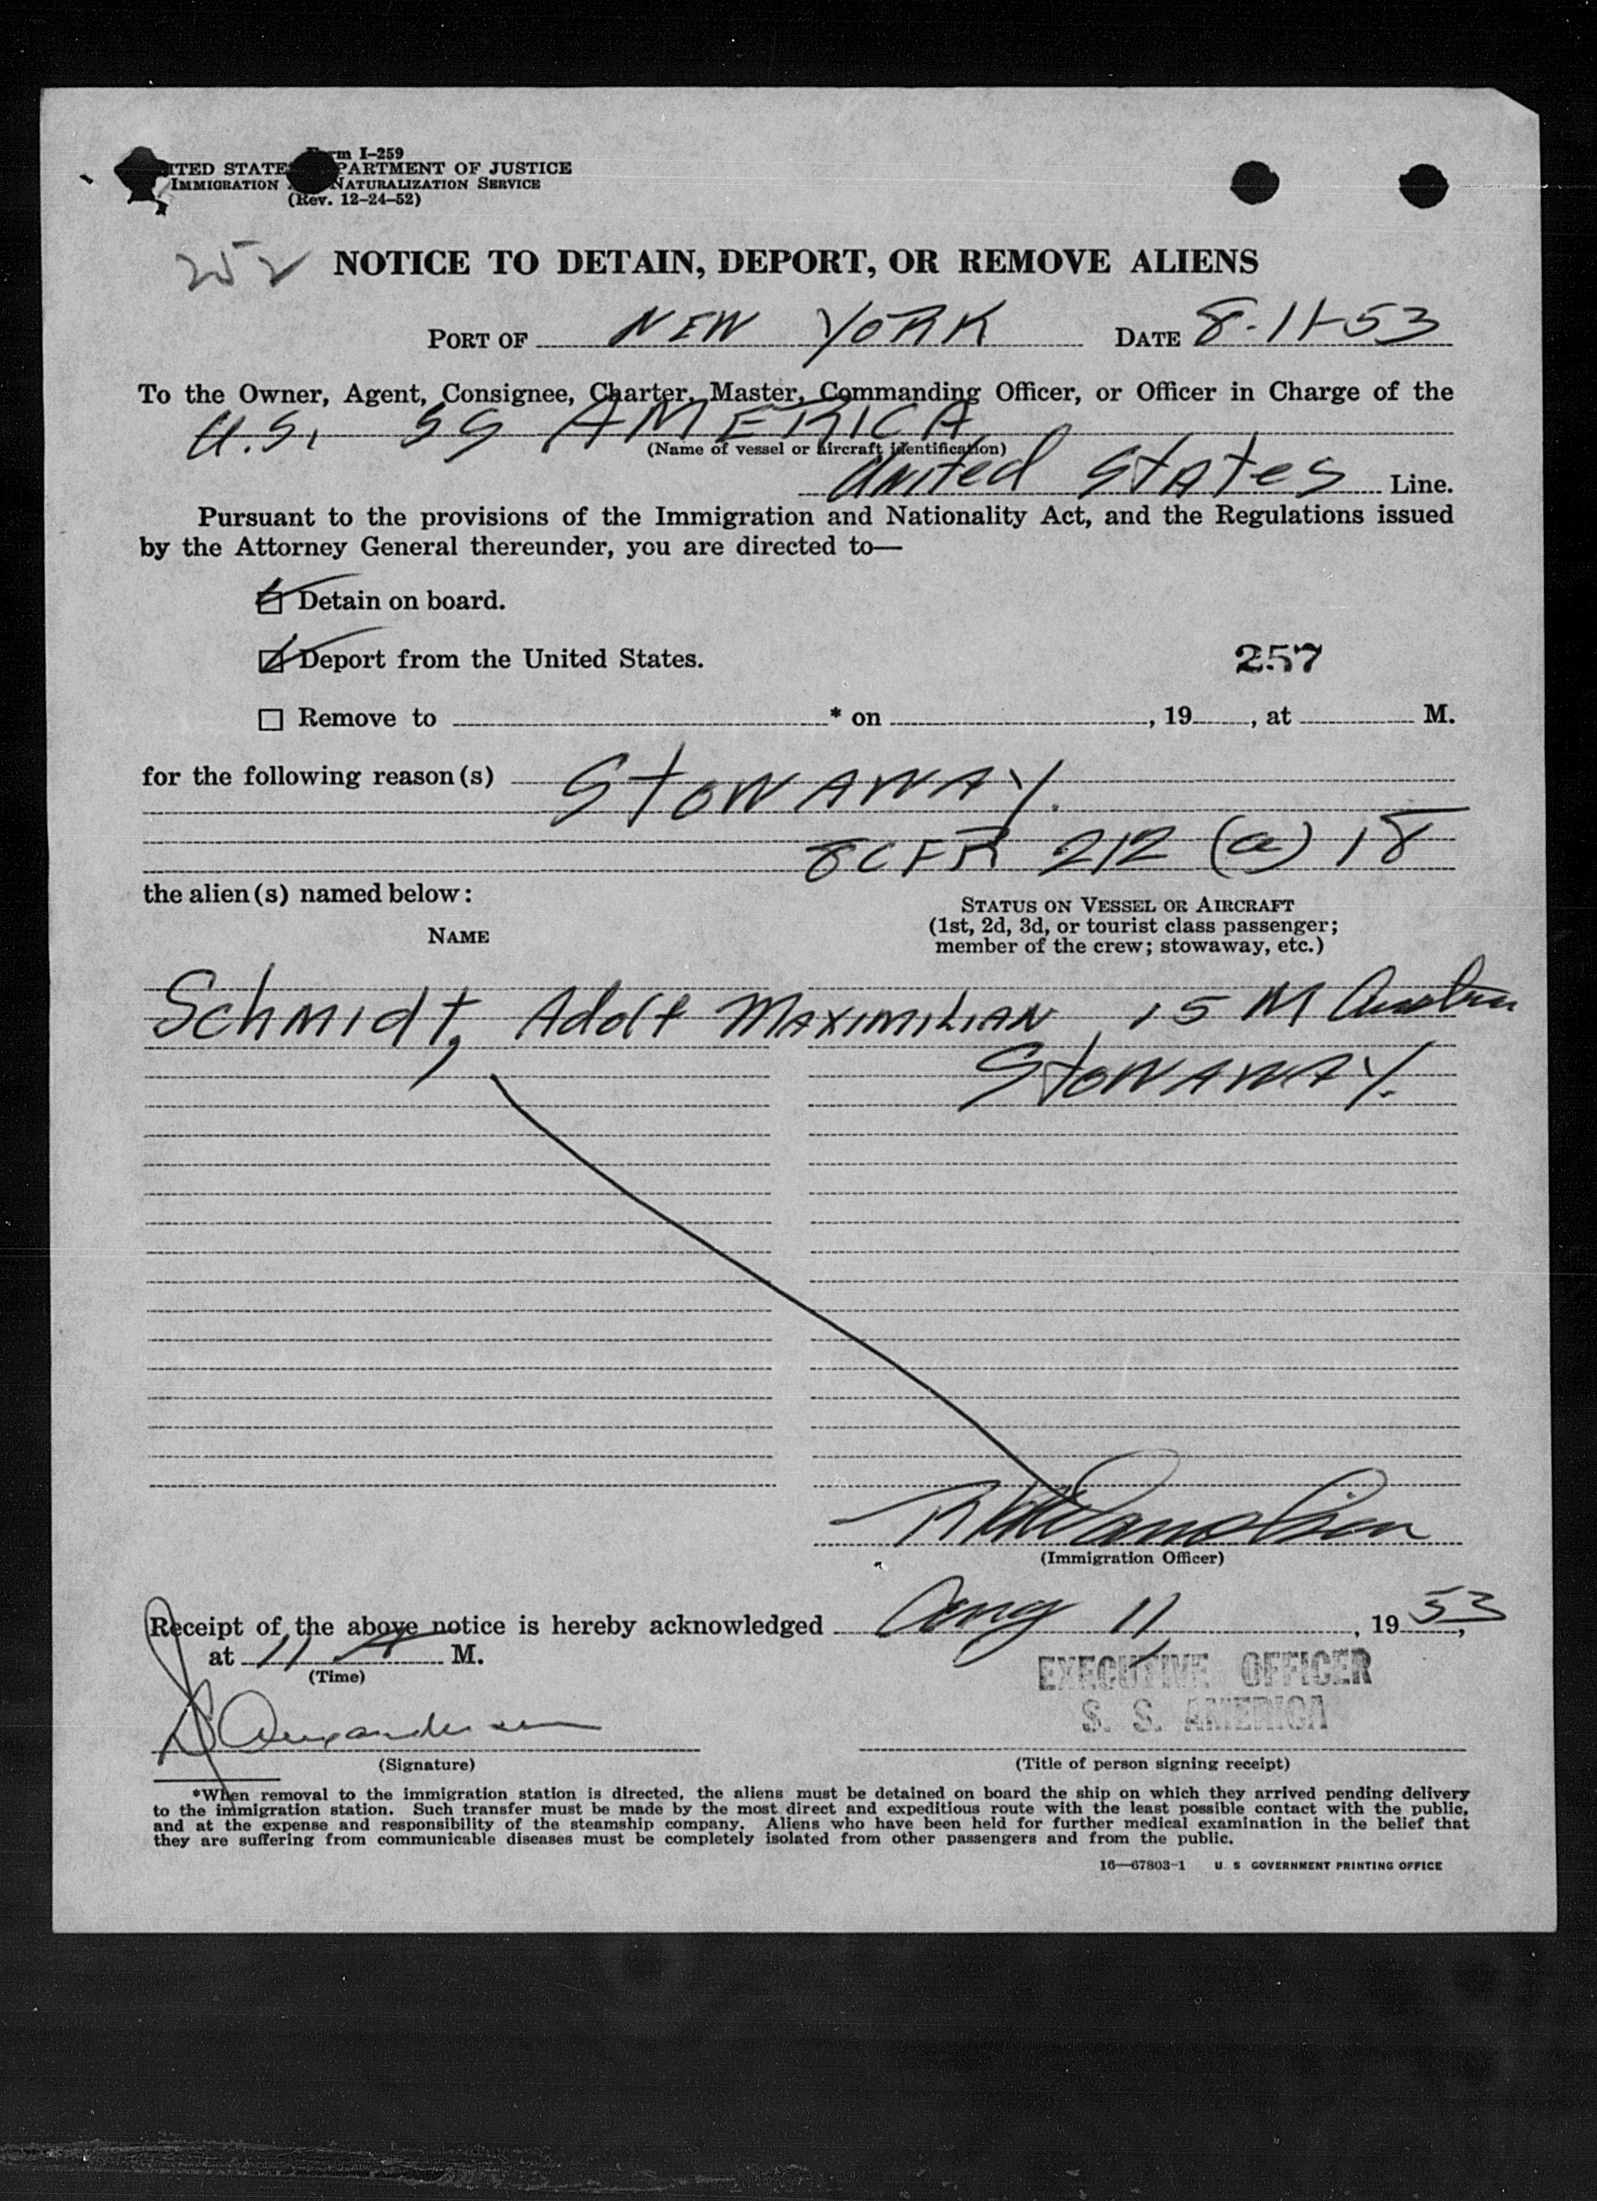 Form I-259
UNITED STATES DEPARTMENT OF JUSTICE
IMMIGRATION AND NATURALIZATION SERVICE
(Rev. 12-24-52)
252
NOTICE TO DETAIN, DEPORT, OR REMOVE ALIENS
PORT OF NEW YORK DATE 8-11-53
To the Owner, Agent, Consignee, Charter, Master, Commanding Officer, or Officer in Charge of the
U.S. SS AMERICA
(Name of vessel or aircraft identification)
United States Line.
Pursuant to the provisions of the Immigration and Nationality Act, and the Regulations issued
by the Attorney General thereunder, you are directed to—
Detain on board.
Deport from the United States.
257
Remove to * on , 19 , at M.
for the following reason(s) STOWAWAY.
8CFR 212 (a) 18
the alien(s) named below:
STATUS ON VESSEL OR AIRCRAFT
(1st, 2d, 3d, or tourist class passenger;
member of the crew; stowaway, etc.)
NAME
Schmidt, Adolf Maximilian 15 M Austrian
STOWAWAY.
(Immigration Officer)
Receipt of the above notice is hereby acknowledged Aug 11, 1953,
at 11 A M.
(Time)
EXECUTIVE OFFICER
S. S. AMERICA
(Signature)
(Title of person signing receipt)
*When removal to the immigration station is directed, the aliens must be detained on board the ship on which they arrived pending delivery
to the immigration station. Such transfer must be made by the most direct and expeditious route with the least possible contact with the public,
and at the expense and responsibility of the steamship company. Aliens who have been held for further medical examination in the belief that
they are suffering from communicable diseases must be completely isolated from other passengers and from the public.
16—67803-1 U. S. GOVERNMENT PRINTING OFFICE